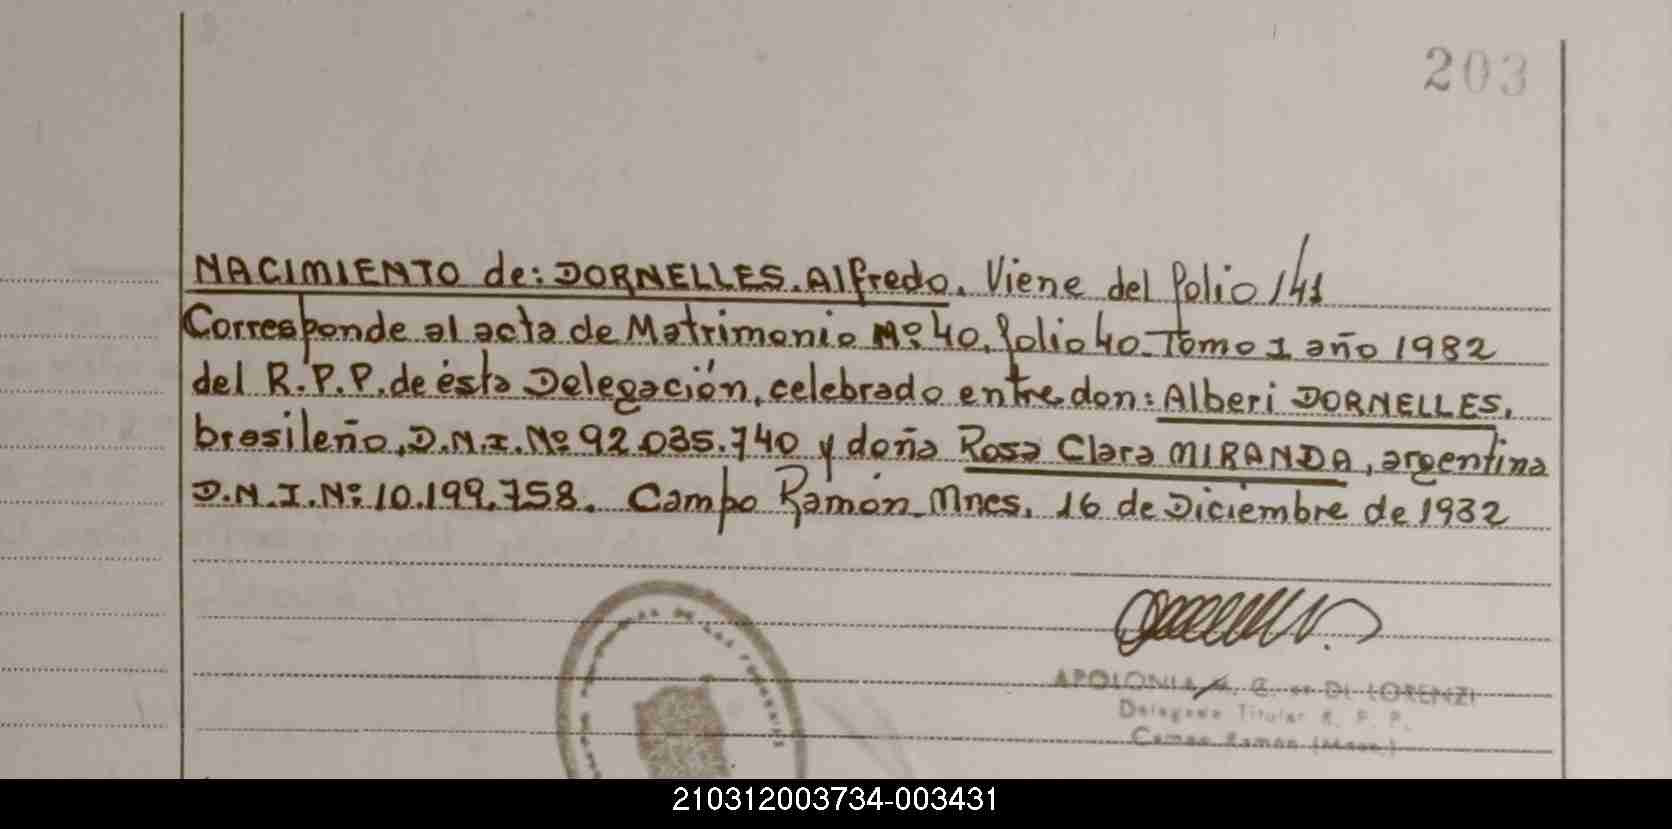 203
NACIMIENTO de: DORNELLES. Alfredo. Viene del folio 141
Corresponde al acta de Matrimonio Nº 40. folio 40. Tomo 1 año 1982
del R.P.P. de ésta Delegación, celebrado entre don: Alberi DORNELLES,
brasileño, D.N.I. Nº 92.035.740 y doña Rosa Clara MIRANDA, argentina
D.N.I. Nº: 10.199.758. Campo Ramón Mnes. 16 de Diciembre de 1982
DE LAS PERSONAS
APOLONIA C. de DI LORENZI
Delegada Titular R. P. P.
Campo Ramon (Mnes.)
210312003734-003431